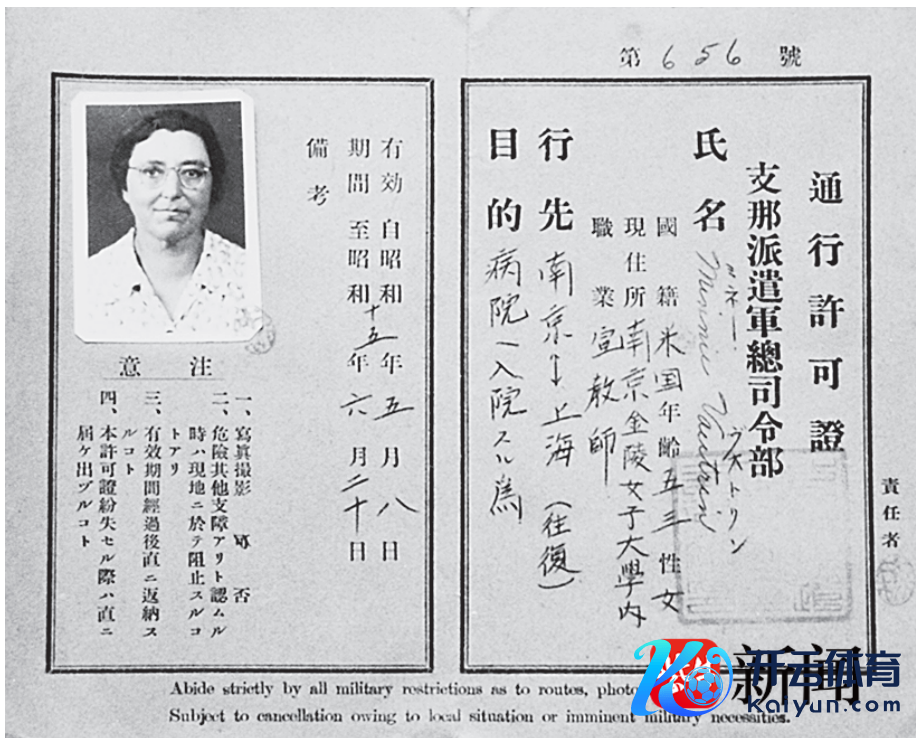 第 656 號
通行許可證
支那派遣軍總司令部
氏名 Minnie Vautrin
ミネー・ヴォトリン
國籍 米国 年齡 五三 性 女
現住所 南京金陵女子大學内
職業 宣教師
行先 南京↔上海 (往復)
目的 病院ヘ入院スル為
責任者
有効 自昭和十五年五月八日
期間 至昭和 年六月二十日
備考
注意
一、寫眞撮影 否
二、危險其他支障アリト認ムル
時ハ現地ニ於テ阻止スルコ
トアリ
三、有效期間經過後直ニ返納ス
ルコト
四、本許可證紛失セル際ハ直ニ
屆ケ出ヅルコト
Abide strictly by all military restrictions as to routes, photo
Subject to cancellation owing to local situation or imminent military necessities.
新闻
开云体育
kaiyun.com